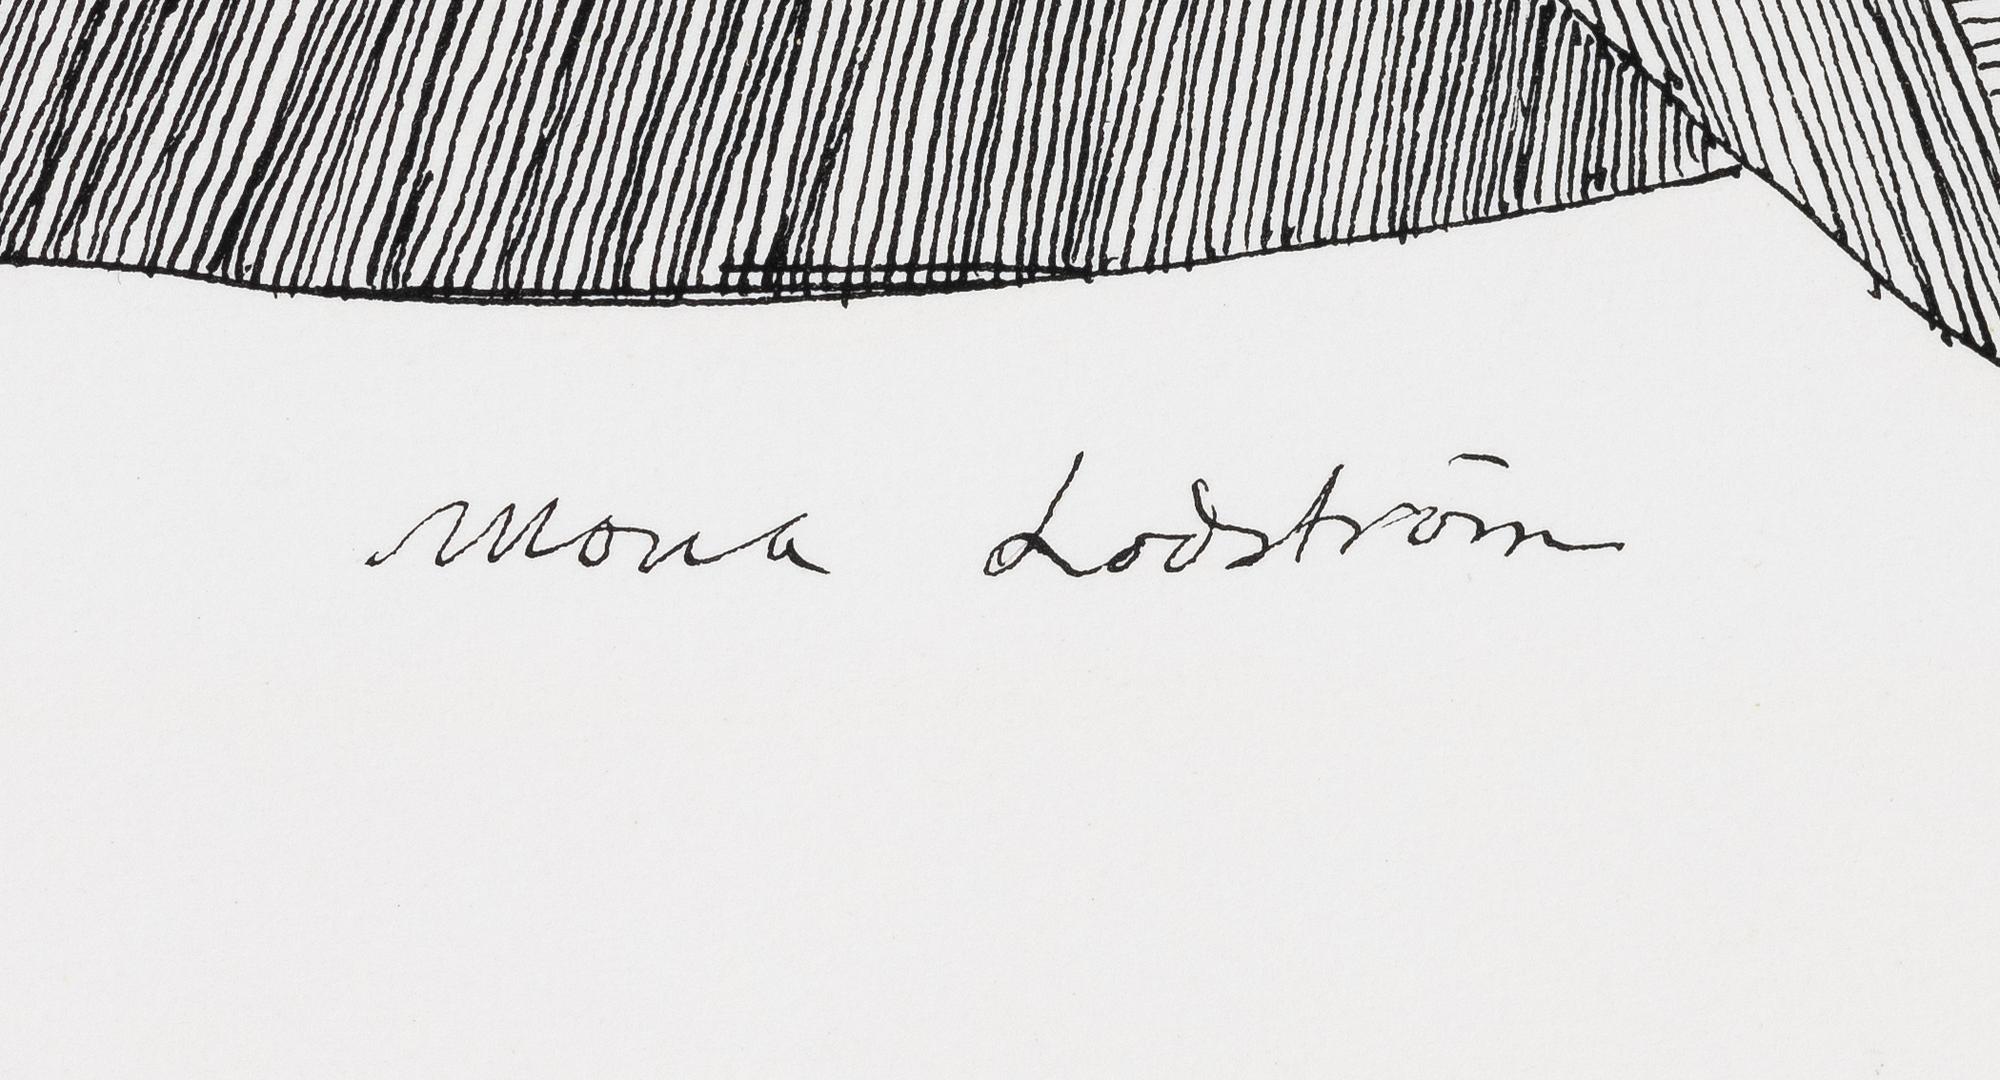 Mona Lodström